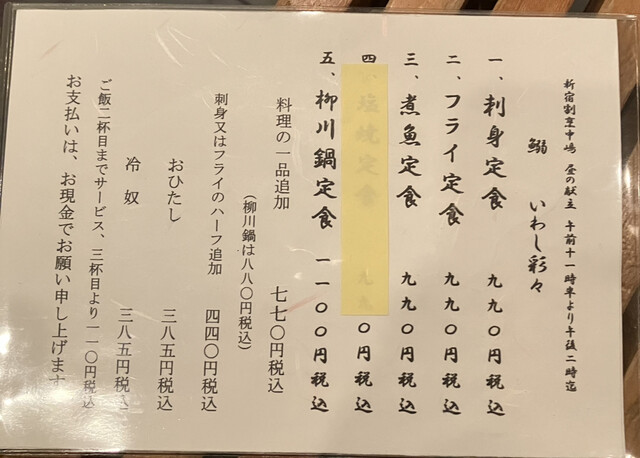 新宿割烹中嶋 昼の献立 午前十一時半より午後二時迄
鰯 いわし彩々
一、刺身定食 九九〇円税込
二、フライ定食 九九〇円税込
三、煮魚定食 九九〇円税込
四、塩焼定食 九九〇円税込
五、柳川鍋定食 一一〇〇円税込
料理の一品追加 七七〇円税込
(柳川鍋は八八〇円税込)
刺身又はフライのハーフ追加 四四〇円税込
おひたし 三八五円税込
冷奴 三八五円税込
ご飯二杯目までサービス、三杯目より一一〇円税込
お支払いは、お現金でお願い申し上げます